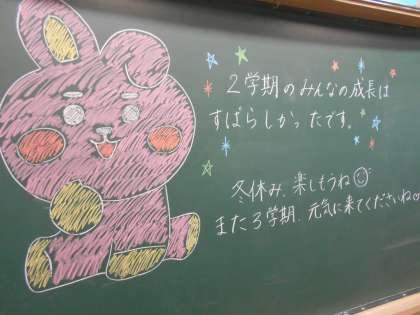 2学期のみんなの成長は
すばらしかったです。
冬休み、楽しもうね
また3学期、元気に来てくださいね